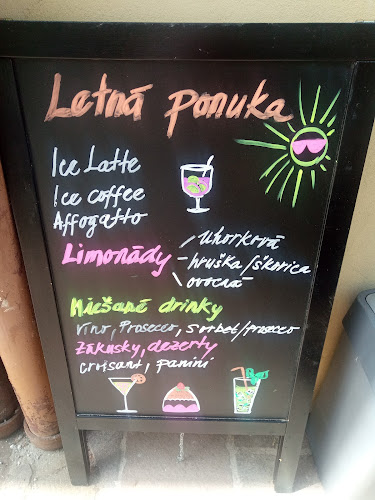 Letná ponuka
Ice Latte
Ice coffee
Affogatto
Limonády - uhorková
- hruška/škorica
ovocná
Miešané drinky
víno, Prosecco, sorbet/prosecco
Zákusky, dezerty
croisant, panini